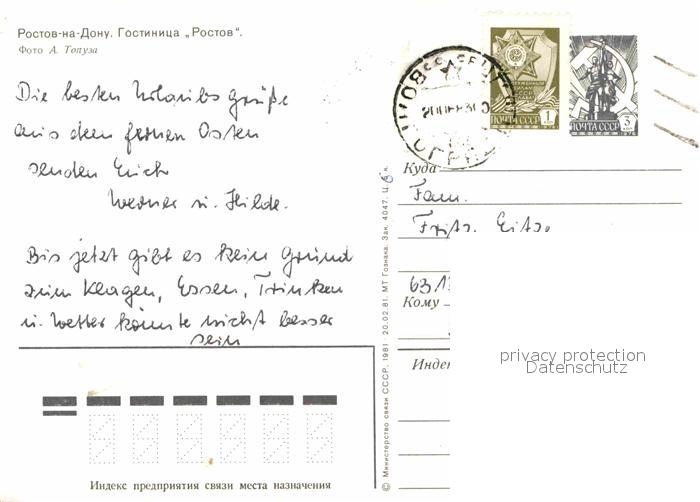 Ростов-на-Дону. Гостиница „Ростов".
Фото А. Топуза
Die besten Urlaubsgrüße
aus dem fernen Osten
senden Euch
Werner u. Hilde.
Bis jetzt gibt es kein Grund
zum Klagen, Essen, Trinken
u. Wetter könnte nicht besser
sein
Индекс предприятия связи места назначения
© Министерство связи СССР, 1981. 20.02.81. МТ Гознака. Зак. 4047. Ц. 6 к.
ПОЧТА СССР 1 КОП
ПОЧТА СССР 3 КОП
Куда
Fam.
Fritz
63
Кому
Индек
privacy protection
Datenschutz